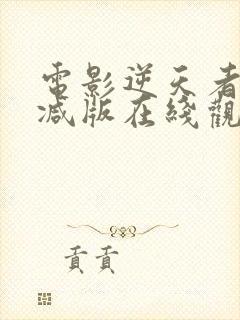 電影逆天者
减版在綫觀
貢貢